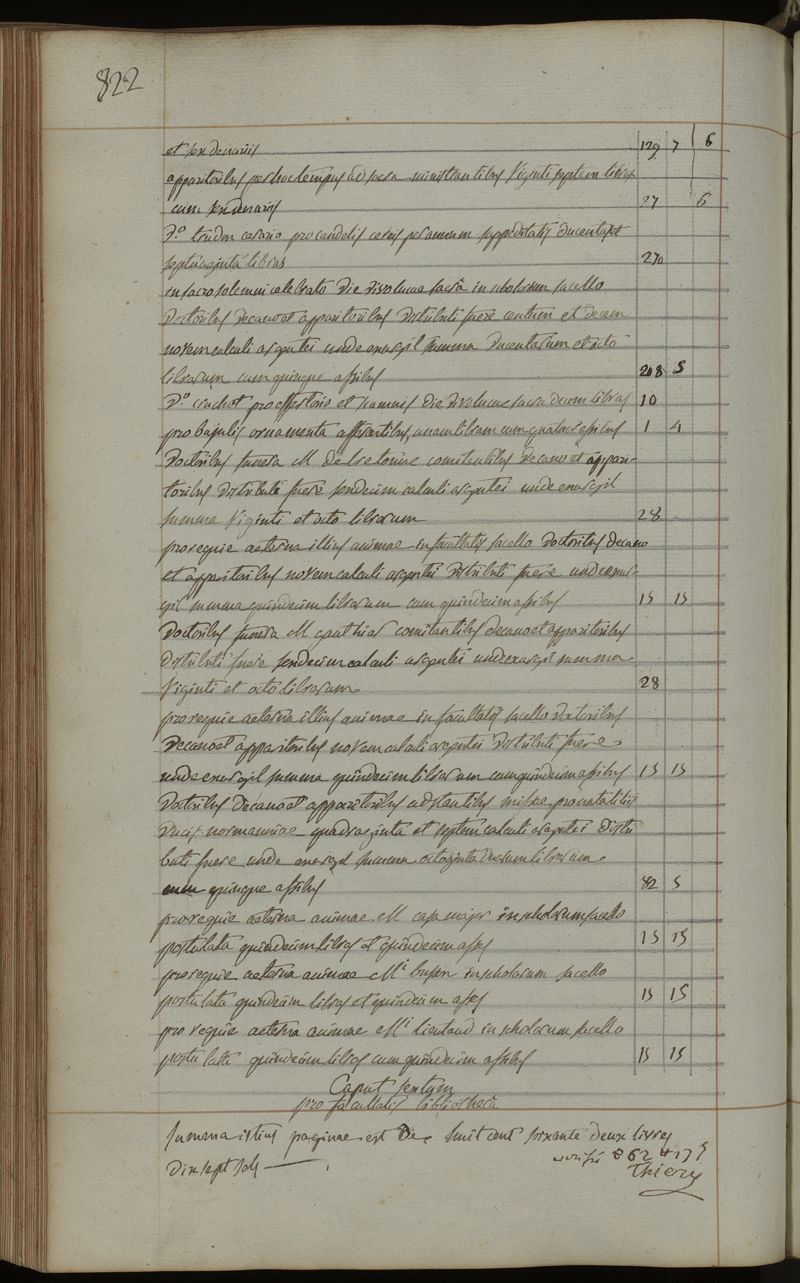 822
et sex denariis 129 7 6
apparitoribus per hoc tempus ad sacra ministrantibus Viginti septem libras
cum sex denariis 27 6
D.o trudon cerario pro candelis cereis per annum suppeditatis ducentas et
septuaginta libras 270
in sacro solemni celebrato die divo lucae sacra in scholarum sacello
Doctoribus decano et apparitoribus distributi fuere centum et decem
novem calculi argentei unde exurgit summa ducentarum et octo
librarum cum quinque assibus 208 5
D.o cruchot pro offertorio et die divo lucae sacra decem libras 10
pro bajulis ornamenta afferentibus unam libram cum quatuor assibus 1 4
Doctoribus funera M de bretonne comitantibus decano et appari-
toribus distributi fuere sexdecim calculi argentei unde exurgit
summa Viginti et octo librarum 28
pro requie aeterna illius animae in facultatis sacello Doctoribus decano
et apparitoribus novem calculi argentei distributi fuere unde exur-
git summa quindecim librarum cum quindecim assibus 15 15
Doctoribus funera M gauthier comitantibus decano et apparitoribus
distributi fuere sexdecim calculi argentei unde exurgit summa
Viginti et octo librarum 28
pro requie aeterna illius animae in facultatis sacello doctoribus
Decano et apparitoribus novem calculi argentei distributi fuere
unde exurgit summa quindecim librarum cum quindecim assibus 15 15
Doctoribus decano et apparitoribus adstantibus missae pro natalitiis
Ducis normanniae quadraginta et septem calculi argentei distri
buti fuere unde exurgit summa octoginta duarum librarum
cum quinque assibus 82 5
pro requie aeterna animae M casamajor in scholarum sacello
postulata quindecim libras et quindecim asses 15 15
pro requie aeterna animae Mi busson in scholarum sacello
postulata quindecim libras et quindecim asses 15 15
pro requie aeterna animae Mi lieutaud in scholarum sacello
postulata quindecim libras cum quindecim assibus 15 15
Caput sextum
pro facultatis bibliotheca
Summa istius paginae est De huit cent soixante deux livres
dix sept sols
verifié 862 # 17 s
Thiery